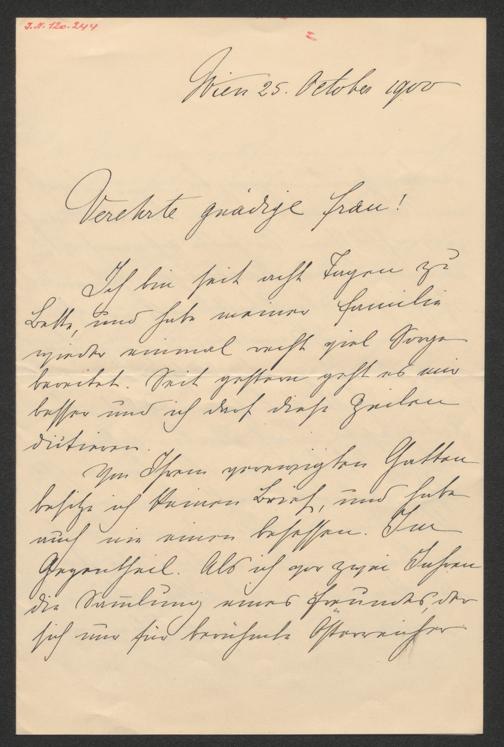 J.N. 120.244
Wien 25. October 1900
Verehrte gnädige Frau!
Ich bin seit acht Tagen zu
Bette, und habe meiner Familie
wieder einmal recht viel Sorge
bereitet. Seit gestern geht es mir
besser und ich darf diese Zeilen
dictieren.
Von Ihrem verewigten Gatten
besitze ich keinen Brief, und habe
auch nie einen besessen. Im
Gegentheil. Als ich vor zwei Jahren
die Sammlung eines Freundes, der
sich nur für berühmte Österreicher